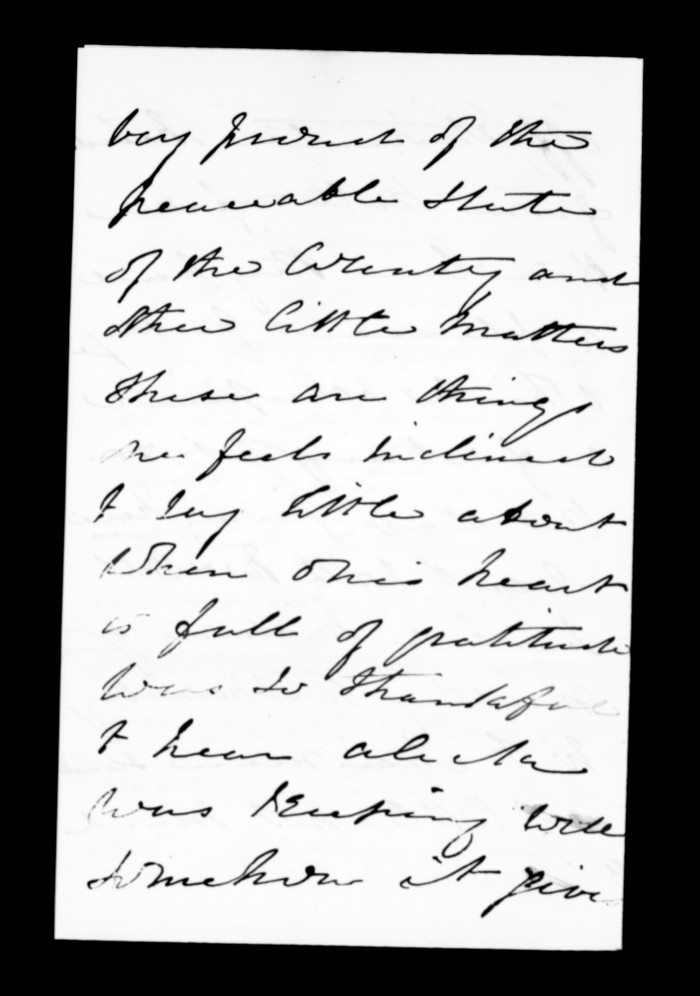 very proud of the
peaceable state
of the Country and
other little matters
these are things
one feels inclined
to say little about
when one's heart
is full of gratitude
was so thankful
to hear
was keeping well
somehow it gives